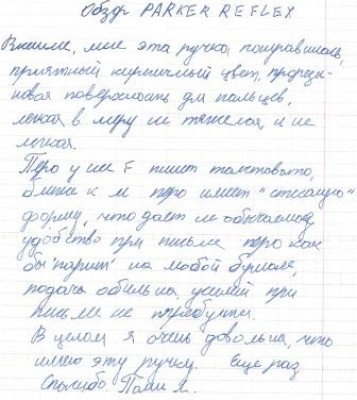 Обзор PARKER REFLEX
Внешне, мне эта ручка понравилась,
приятный кирпичный цвет, прорези-
новая поверхность для пальцев,
легкая, в меру не тяжелая, и не
легкая.
Перо у нее F пишет толстовато,
ближе к м перо имеет "стесаную"
форму, что дает не обычаемое
удобство при письме перо как
бы "парит" на любой бумаге,
подача обильна, усилий при
письме не требует.
В целом я очень довольна, что
имею эту ручку. Еще раз
Спасибо